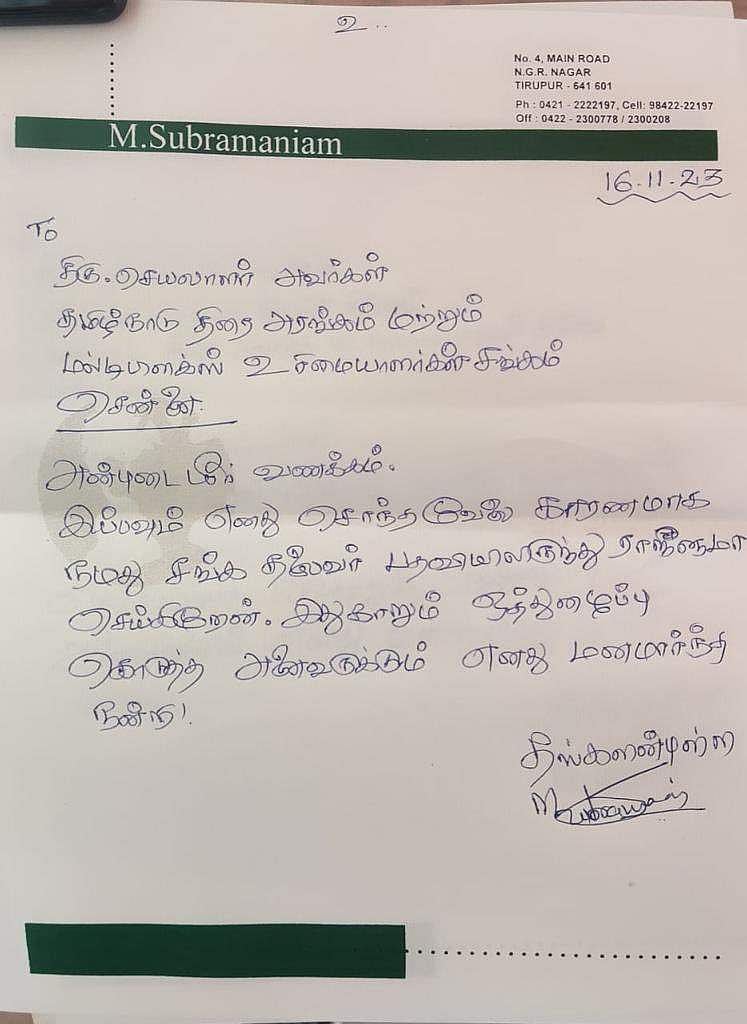 உ..
No. 4, MAIN ROAD
N.G.R. NAGAR
TIRUPUR - 641 601
Ph : 0421 - 2222197, Cell: 98422-22197
Off : 0422 - 2300778 / 2300208
M.Subramaniam
16.11.23
To
திரு. செயலாளர் அவர்கள்
தமிழ்நாடு திரை அரங்கம் மற்றும்
மல்டிபளக்ஸ் உரிமையாளர்கள் சங்கம்
சென்னை.
அன்புடையீர் வணக்கம்.
இப்பவும் எனது சொந்த வேலை காரணமாக
நமது சங்க தலைவர் பதவியிலிருந்து ராஜினாமா
செய்கிறேன். இதுகாறும் ஒத்துழைப்பு
கொடுத்த அனைவருக்கும் எனது மனமார்ந்த
நன்றி!
தங்களன்புள்ள